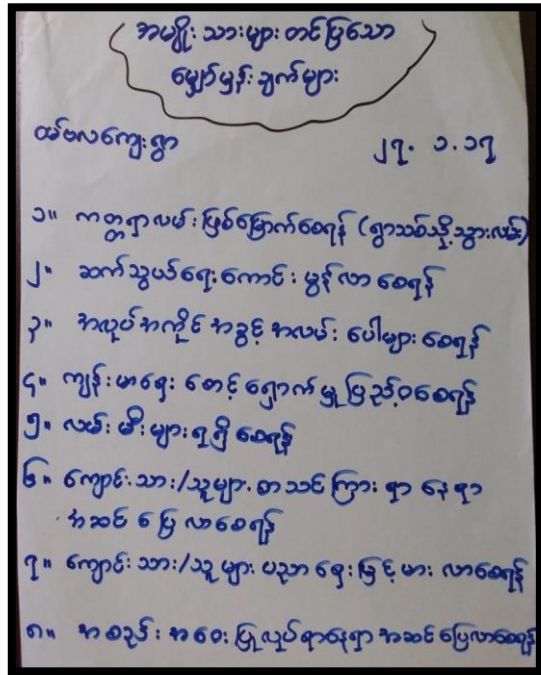 အမျိုးသားများတင်ပြသော
မျှော်မှန်းချက်များ
ထမ်ဗလကျေးရွာ
၂၇. ၁. ၁၇
၁။ ကတ္တရာလမ်းဖြစ်မြောက်စေရန် (ရွာသစ်သို့သွားလမ်း)
၂။ ဆက်သွယ်ရေးကောင်းမွန်လာစေရန်
၃။ အလုပ်အကိုင်အခွင့်အလမ်းပေါများစေရန်
၄။ ကျန်းမာရေးစောင့်ရှောက်မှုပြည့်ဝစေရန်
၅။ လမ်းမီးများရရှိစေရန်
၆။ ကျောင်းသား/သူများ စာသင်ကြားရာနေရာ
အဆင်ပြေလာစေရန်
၇။ ကျောင်းသား/သူများ ပညာရေးမြင့်မားလာစေရန်
၈။ အစည်းအဝေးပြုလုပ်ရာနေရာအဆင်ပြေလာစေရန်